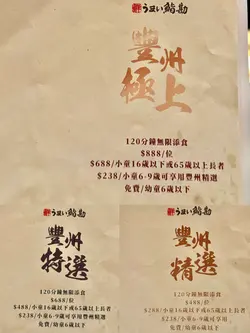 うまい鮨勘
豐州
極上
120分鐘無限添食
$888/位
$688/小童16歲以下或65歲以上長者
$238/小童6-9歲可享用豐州精選
免費/幼童6歲以下
うまい鮨勘
豐州
特選
120分鐘無限添食
$688/位
$488/小童16歲以下或65歲以上長者
$238/小童6-9歲可享用豐州精選
免費/幼童6歲以下
うまい鮨勘
豐州
精選
120分鐘無限添食
$488/位
$288/小童16歲以下或65歲以上長者
$238/小童6-9歲可享用豐州精選
免費/幼童6歲以下